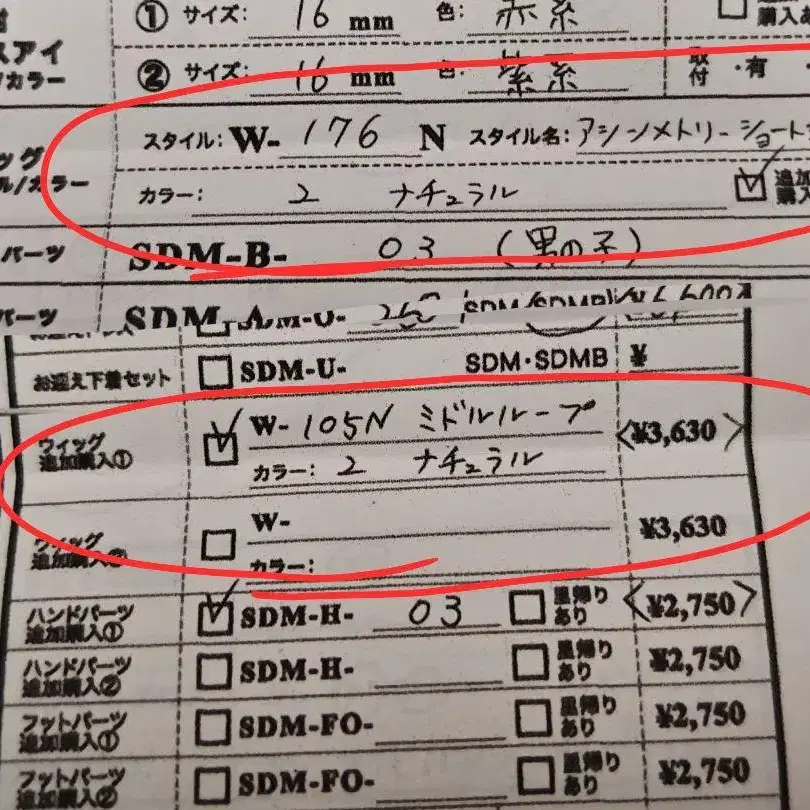 ① サイズ: 16 mm 色: 赤糸
購入
スアイ
/カラー
② サイズ: 16 mm 色: 紫糸 取付 ・有 ・
ッグ
ル/カラー
スタイル: W- 176 N スタイル名: アシンメトリーショート
カラー: 2 ナチュラル 追加購入
パーツ SDM-B- 03 (男の子)
パーツ
お迎え下着セット SDM-U- SDM・SDMB ¥
ウィッグ追加購入① W- 105N ミドルループ <¥3,630>
カラー: 2 ナチュラル
ウィッグ追加購入② W- ¥3,630
カラー:
ハンドパーツ追加購入① SDM-H- 03 里帰りあり <¥2,750>
ハンドパーツ追加購入② SDM-H- 里帰りあり ¥2,750
フットパーツ追加購入① SDM-FO- 里帰りあり ¥2,750
フットパーツ追加購入② SDM-FO- 里帰りあり ¥2,750